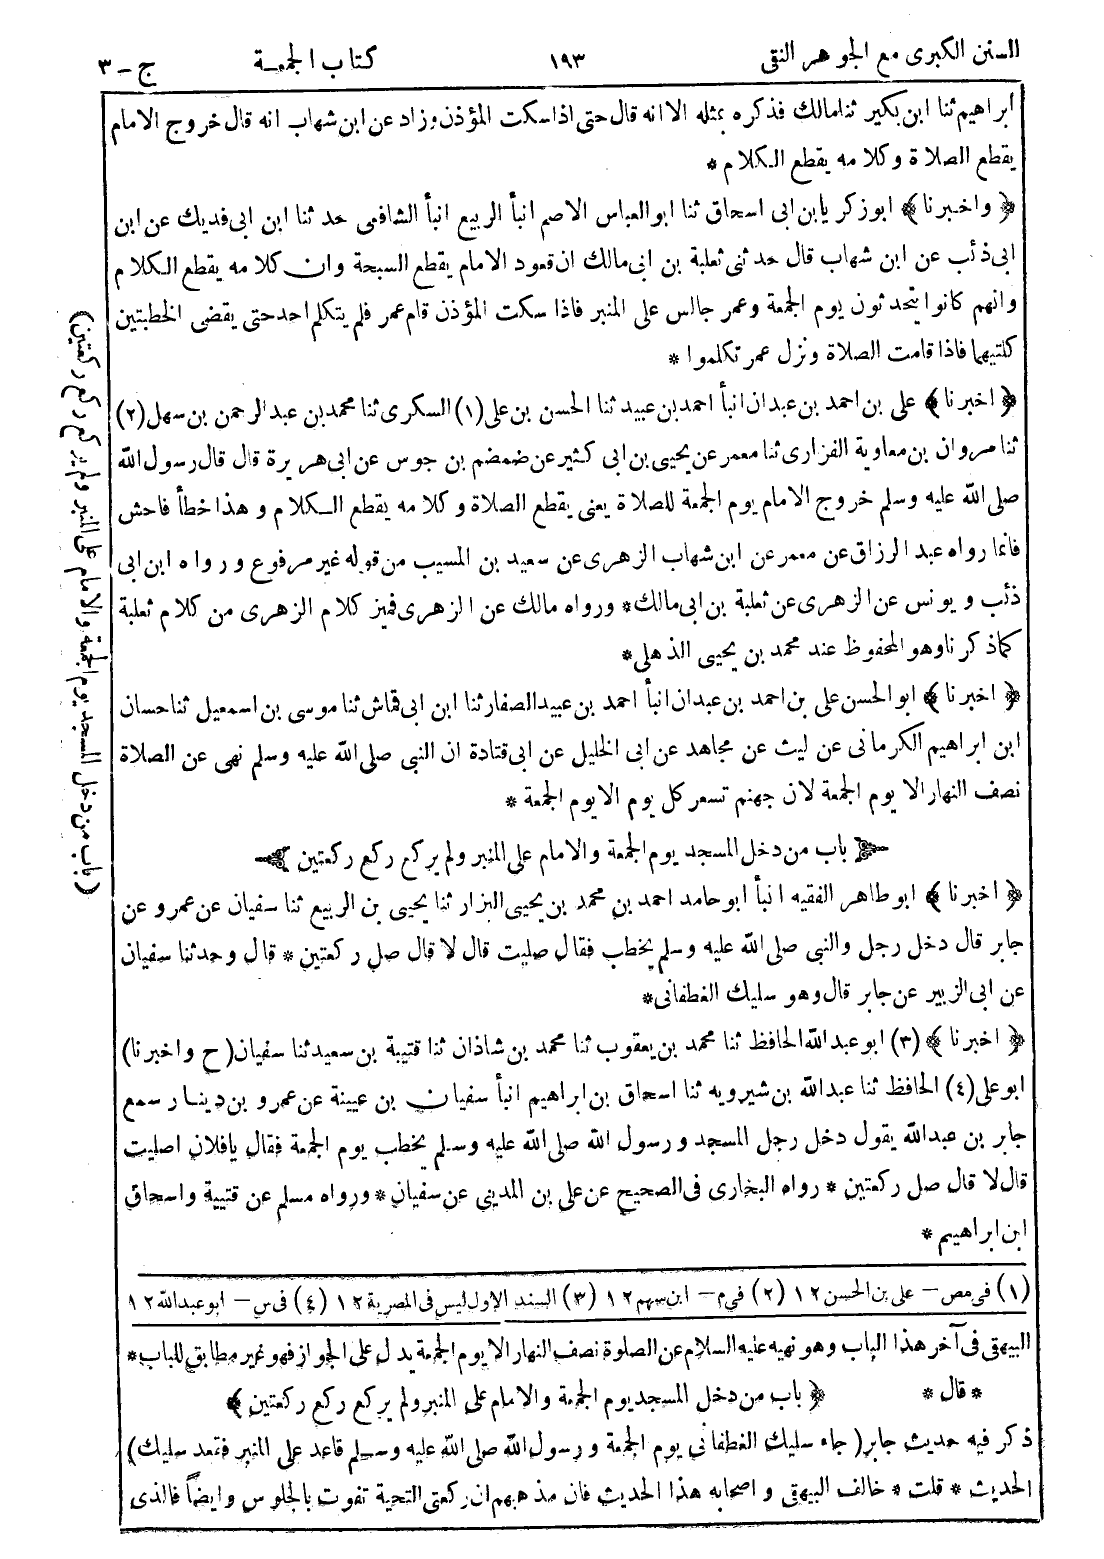 السنن الكبرى مع الجوهر النقى ١٩٣ كتاب الجمعة ج-٣
ابراهيم ثنا ابن بكير ثنا مالك فذكره بمثله الا انه قال حتى اذا سكت المؤذن وزاد عن ابن شهاب انه قال خروج الامام
يقطع الصلاة وكلامه يقطع الكلام *
﴿ واخبرنا ﴾ ابو زكريا بن ابى اسحاق ثنا ابو العباس الاصم انبأ الربيع انبأ الشافعى حدثنا ابن ابى فديك عن ابن
ابى ذئب عن ابن شهاب قال حدثنى ثعلبة بن ابى مالك ان قعود الامام يقطع السبحة وان كلامه يقطع الكلام
وانهم كانوا يتحدثون يوم الجمعة وعمر جالس على المنبر فاذا سكت المؤذن قام عمر فلم يتكلم احد حتى يقضى الخطبتين
كلتيهما فاذا قامت الصلاة ونزل عمر تكلموا *
﴿ اخبرنا ﴾ على بن احمد بن عبدان انبأ احمد بن عبيد ثنا الحسن بن على (١) السكرى ثنا محمد بن عبد الرحمن بن سهل (٢)
ثنا مروان بن معاوية الفزارى ثنا معمر عن يحيى بن ابى كثير عن ضمضم بن جوس عن ابى هريرة قال قال رسول الله
صلى الله عليه وسلم خروج الامام يوم الجمعة للصلاة يعنى يقطع الصلاة وكلامه يقطع الكلام وهذا خطأ فاحش
فانما رواه عبد الرزاق عن معمر عن ابن شهاب الزهرى عن سعيد بن المسيب من قوله غير مرفوع ورواه ابن ابى
ذئب ويونس عن الزهرى عن ثعلبة بن ابى مالك * ورواه مالك عن الزهرى فميز كلام الزهرى من كلام ثعلبة
كما ذكرنا وهو المحفوظ عند محمد بن يحيى الذهلى *
﴿ اخبرنا ﴾ ابو الحسن على بن احمد بن عبدان انبأ احمد بن عبيد الصفار ثنا ابن ابى قماش ثنا موسى بن اسمعيل ثنا حسان
ابن ابراهيم الكرمانى عن ليث عن مجاهد عن ابى الخليل عن ابى قتادة ان النبى صلى الله عليه وسلم نهى عن الصلاة
نصف النهار الا يوم الجمعة لان جهنم تسعر كل يوم الا يوم الجمعة *
﴿ باب من دخل المسجد يوم الجمعة والامام على المنبر ولم يركع ركع ركعتين ﴾
﴿ اخبرنا ﴾ ابو طاهر الفقيه انبأ ابو حامد احمد بن محمد بن يحيى البزار ثنا يحيى بن الربيع ثنا سفيان عن عمرو عن
جابر قال دخل رجل والنبى صلى الله عليه وسلم يخطب فقال صليت قال لا قال صل ركعتين * قال وحدثنا سفيان
عن ابى الزبير عن جابر قال وهو سليك الغطفانى *
﴿ اخبرنا ﴾ (٣) ابو عبد الله الحافظ ثنا محمد بن يعقوب ثنا محمد بن شاذان ثنا قتيبة بن سعيد ثنا سفيان (ح واخبرنا)
ابو على (٤) الحافظ ثنا عبد الله بن شيرويه ثنا اسحاق بن ابراهيم انبأ سفيان بن عيينة عن عمرو بن دينار سمع
جابر بن عبد الله يقول دخل رجل المسجد ورسول الله صلى الله عليه وسلم يخطب يوم الجمعة فقال يا فلان اصليت
قال لا قال صل ركعتين * رواه البخارى فى الصحيح عن على بن المدينى عن سفيان * ورواه مسلم عن قتيبة واسحاق
ابن ابراهيم *
(١) فى مص - على بن الحسن ١٢ (٢) فى م - ابن سهم ١٢ (٣) السند الاول ليس فى المصرية ١٢ (٤) فى س - ابو عبد الله ١٢
البيهقى فى آخر هذا الباب وهو نهيه عليه السلام عن الصلوة نصف النهار الا يوم الجمعة يدل على الجواز فهو غير مطابق للباب *
* قال * ﴿ باب من دخل المسجد يوم الجمعة والامام على المنبر ولم يركع ركع ركعتين ﴾
ذكر فيه حديث جابر (جاء سليك الغطفانى يوم الجمعة ورسول الله صلى الله عليه وسلم قاعد على المنبر فقعد سليك)
الحديث * قلت * خالف البيهقى واصحابه هذا الحديث فان مذهبهم ان ركعتى التحية تفوت بالجلوس وايضاً فالذى
(باب من دخل المسجد يوم الجمعة والامام على المنبر ولم يركع ركع ركعتين)